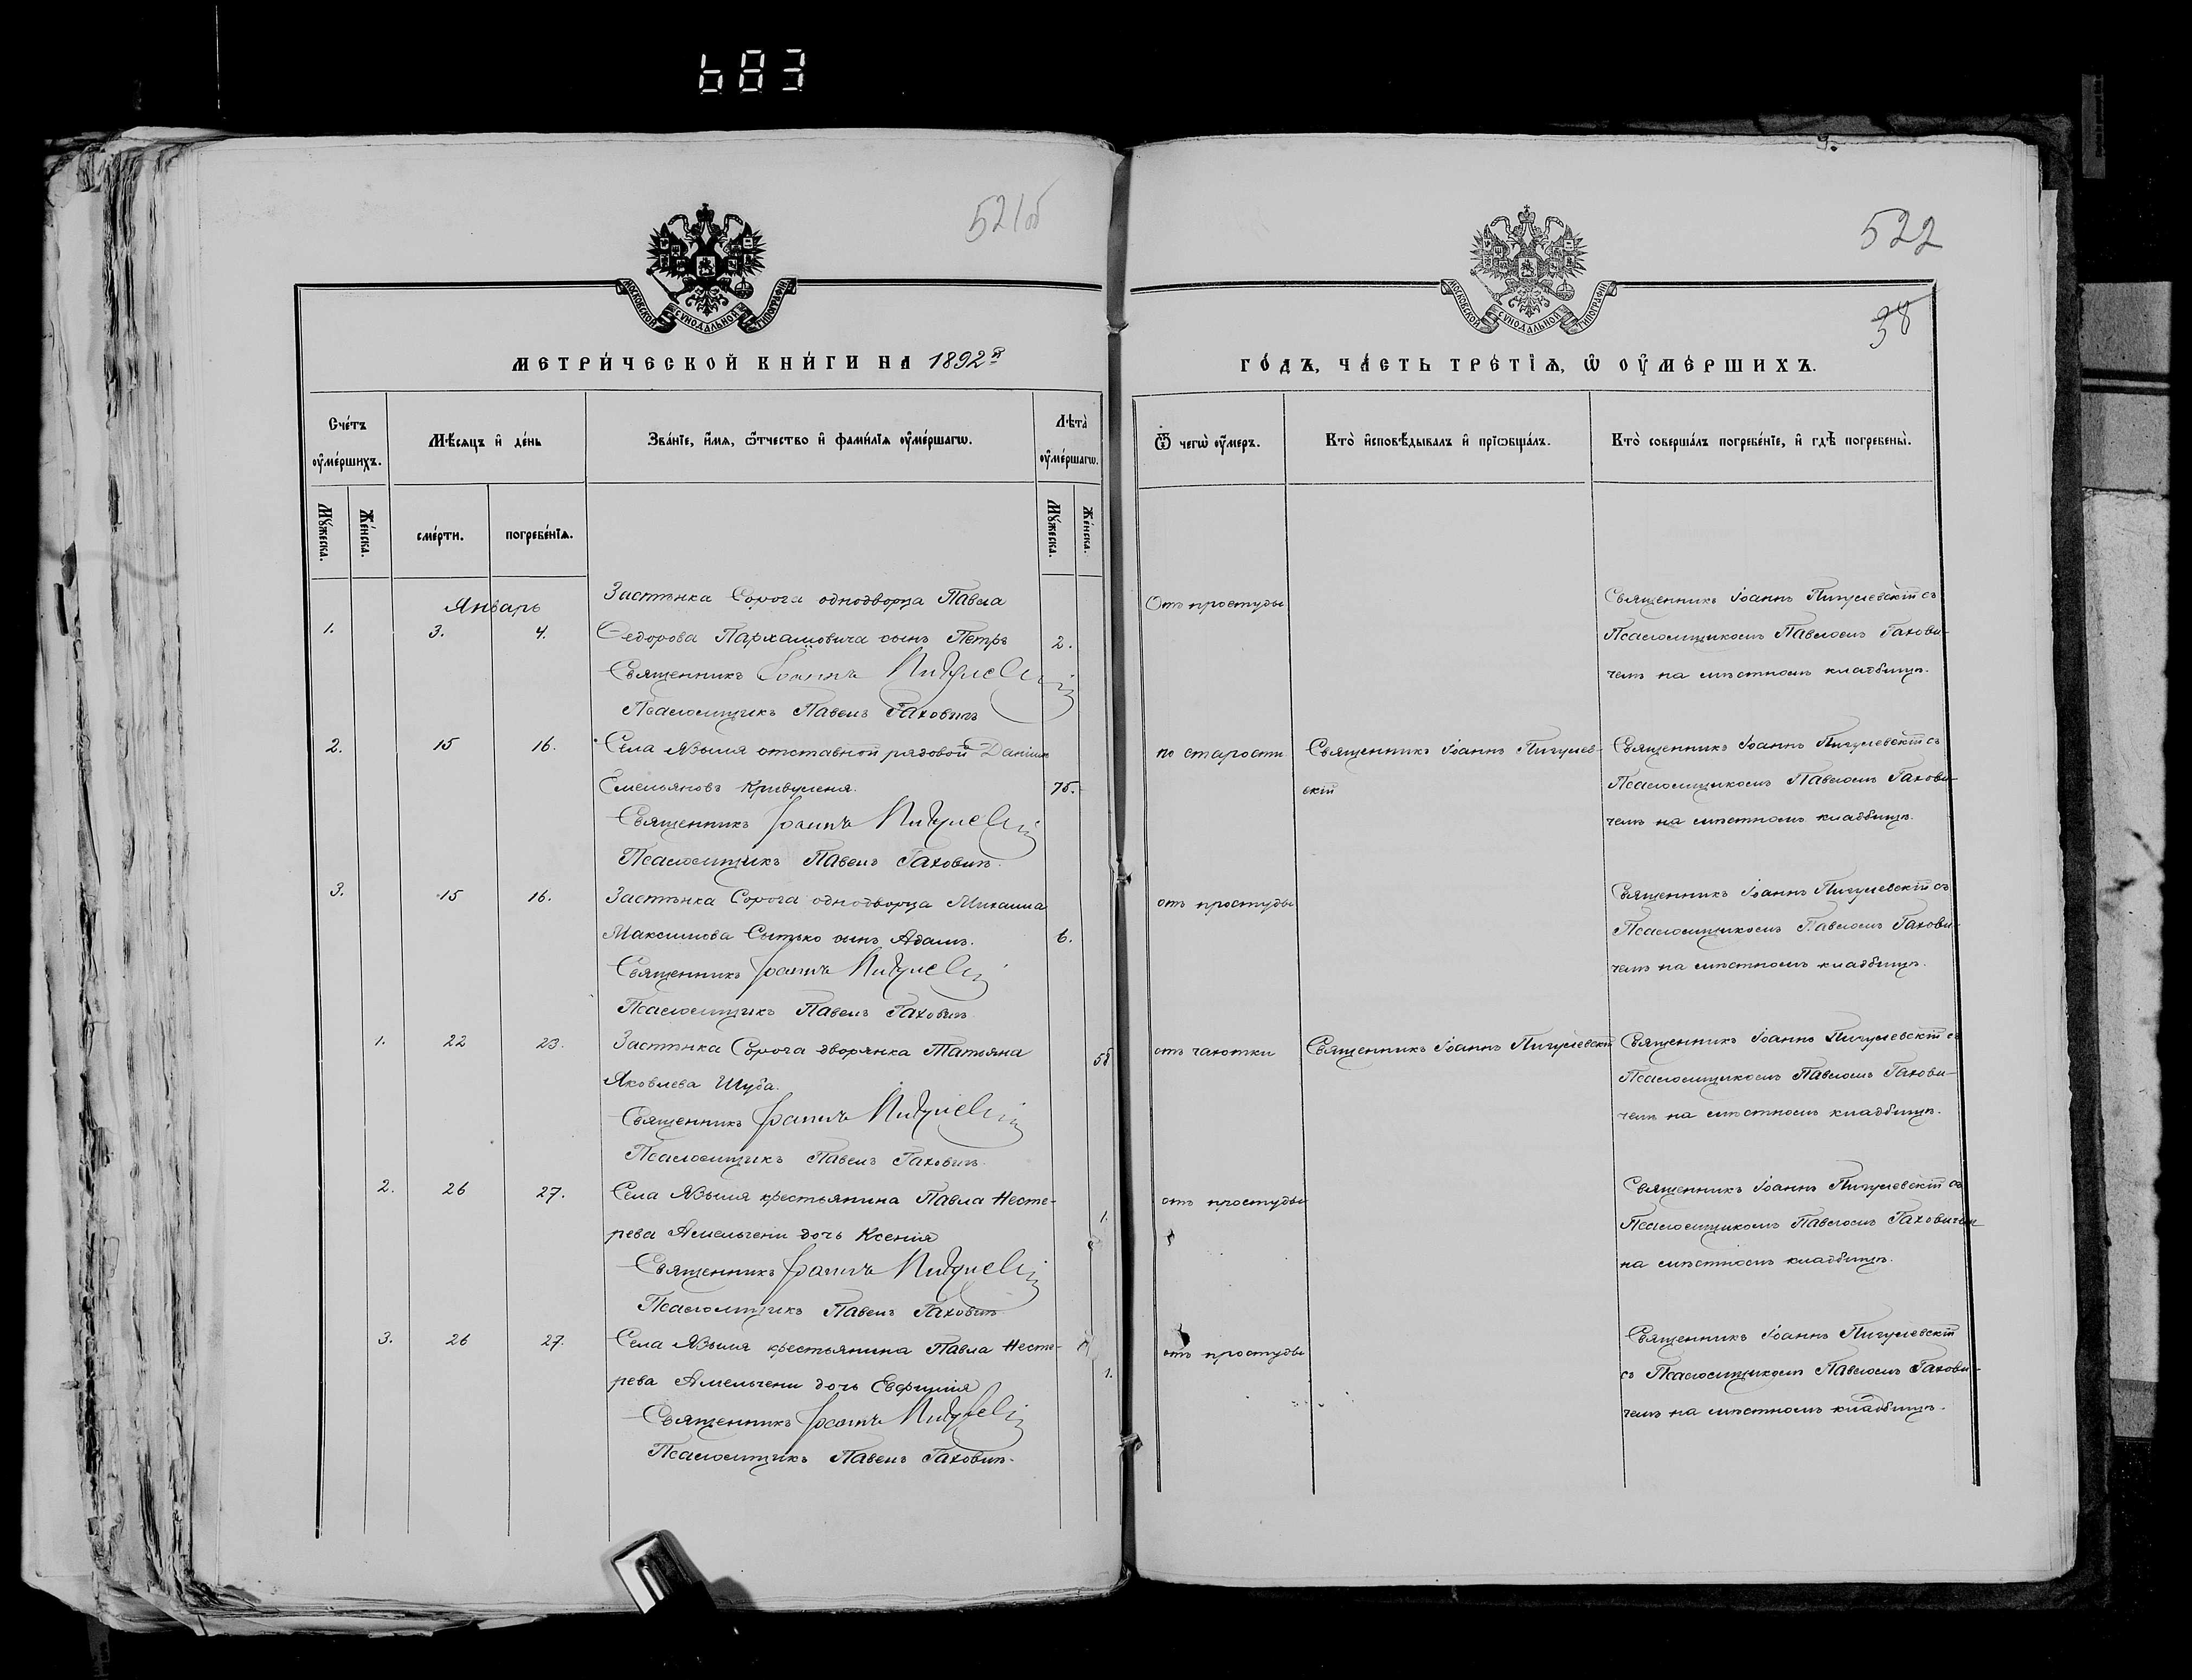 683
521об
522
38
МОСКОВСКОЙ СУНОДАЛЬНОЙ ТИПОГРАФІИ
МОСКОВСКОЙ СУНОДАЛЬНОЙ ТИПОГРАФІИ
МЕТРИ́ЧЕСКОЙ КНИ́ГИ НА 1892й
ГО́ДЪ, ЧА́СТЬ ТРЕ́ТІѦ, Ѡ ОУ҆МЕ́РШИХЪ.
Сче́тъ оу҆ме́ршихъ.
Мѣ́сѧцъ и҆ де́нь
Зва́нїе, и҆́мѧ, ѻ҆́тчество и҆ фами́лїѧ оу҆ме́ршагѡ.
Лѣта̀ оу҆ме́ршагѡ.
Ѿ чегѡ̀ оу҆́меръ.
Кто̀ и҆сповѣ́дывалъ и҆ прїѡбща́лъ.
Кто̀ соверша́лъ погребе́нїе, и҆ гдѣ̀ погребены̀.
Мꙋ́жеска.
Же́нска.
сме́рти.
погребе́нїѧ.
Мꙋ́жеска.
Же́нска.
Январь
1.
3.
4.
Застѣнка Сорога однодворца Павла
Федорова Пархамовича сынъ Петръ
2.
Священникъ Іоаннъ Пигулевскій
Псаломщикъ Павелъ Гаховичъ
Отъ простуды
Священникъ Іоаннъ Пигулевскій съ
Псаломщикомъ Павломъ Гахови-
чемъ на мѣстномъ кладбищѣ.
2.
15
16.
Села Языля отставной рядовой Даніилъ
Емельяновъ Кривуленя.
75.
Священникъ Іоаннъ Пигулевскій
Псаломщикъ Павелъ Гаховичъ.
по старости
Священникъ Іоаннъ Пигулев-
скій
Священникъ Іоаннъ Пигулевскій съ
Псаломщикомъ Павломъ Гахови-
чемъ на мѣстномъ кладбищѣ.
3.
15
16.
Застѣнка Сорога однодворца Михаила
Максимова Сытько сынъ Адамъ.
6.
Священникъ Іоаннъ Пигулевскій
Псаломщикъ Павелъ Гаховичъ.
отъ простуды
Священникъ Іоаннъ Пигулевскій съ
Псаломщикомъ Павломъ Гахови-
чемъ на мѣстномъ кладбищѣ.
1.
22
23.
Застѣнка Сорога дворянка Татьяна
Яковлева Шуба.
Священникъ Іоаннъ Пигулевскій
Псаломщикъ Павелъ Гаховичъ.
отъ чахотки
Священникъ Іоаннъ Пигулевскій
Священникъ Іоаннъ Пигулевскій съ
Псаломщикомъ Павломъ Гахови-
чемъ на мѣстномъ кладбищѣ.
2.
26
27.
Села Языля крестьянина Павла Несте-
рева Амельчени дочь Ксенія
1.
Священникъ Іоаннъ Пигулевскій
Псаломщикъ Павелъ Гаховичъ
отъ простуды
Священникъ Іоаннъ Пигулевскій съ
Псаломщикомъ Павломъ Гаховичемъ
на мѣстномъ кладбищѣ.
3.
26
27.
Села Языля крестьянина Павла Несте-
рева Амельчени дочь Евфимія
1.
Священникъ Іоаннъ Пигулевскій
Псаломщикъ Павелъ Гаховичъ.
отъ простуды
Священникъ Іоаннъ Пигулевскій
съ Псаломщикомъ Павломъ Гахови-
чемъ на мѣстномъ кладбищѣ.